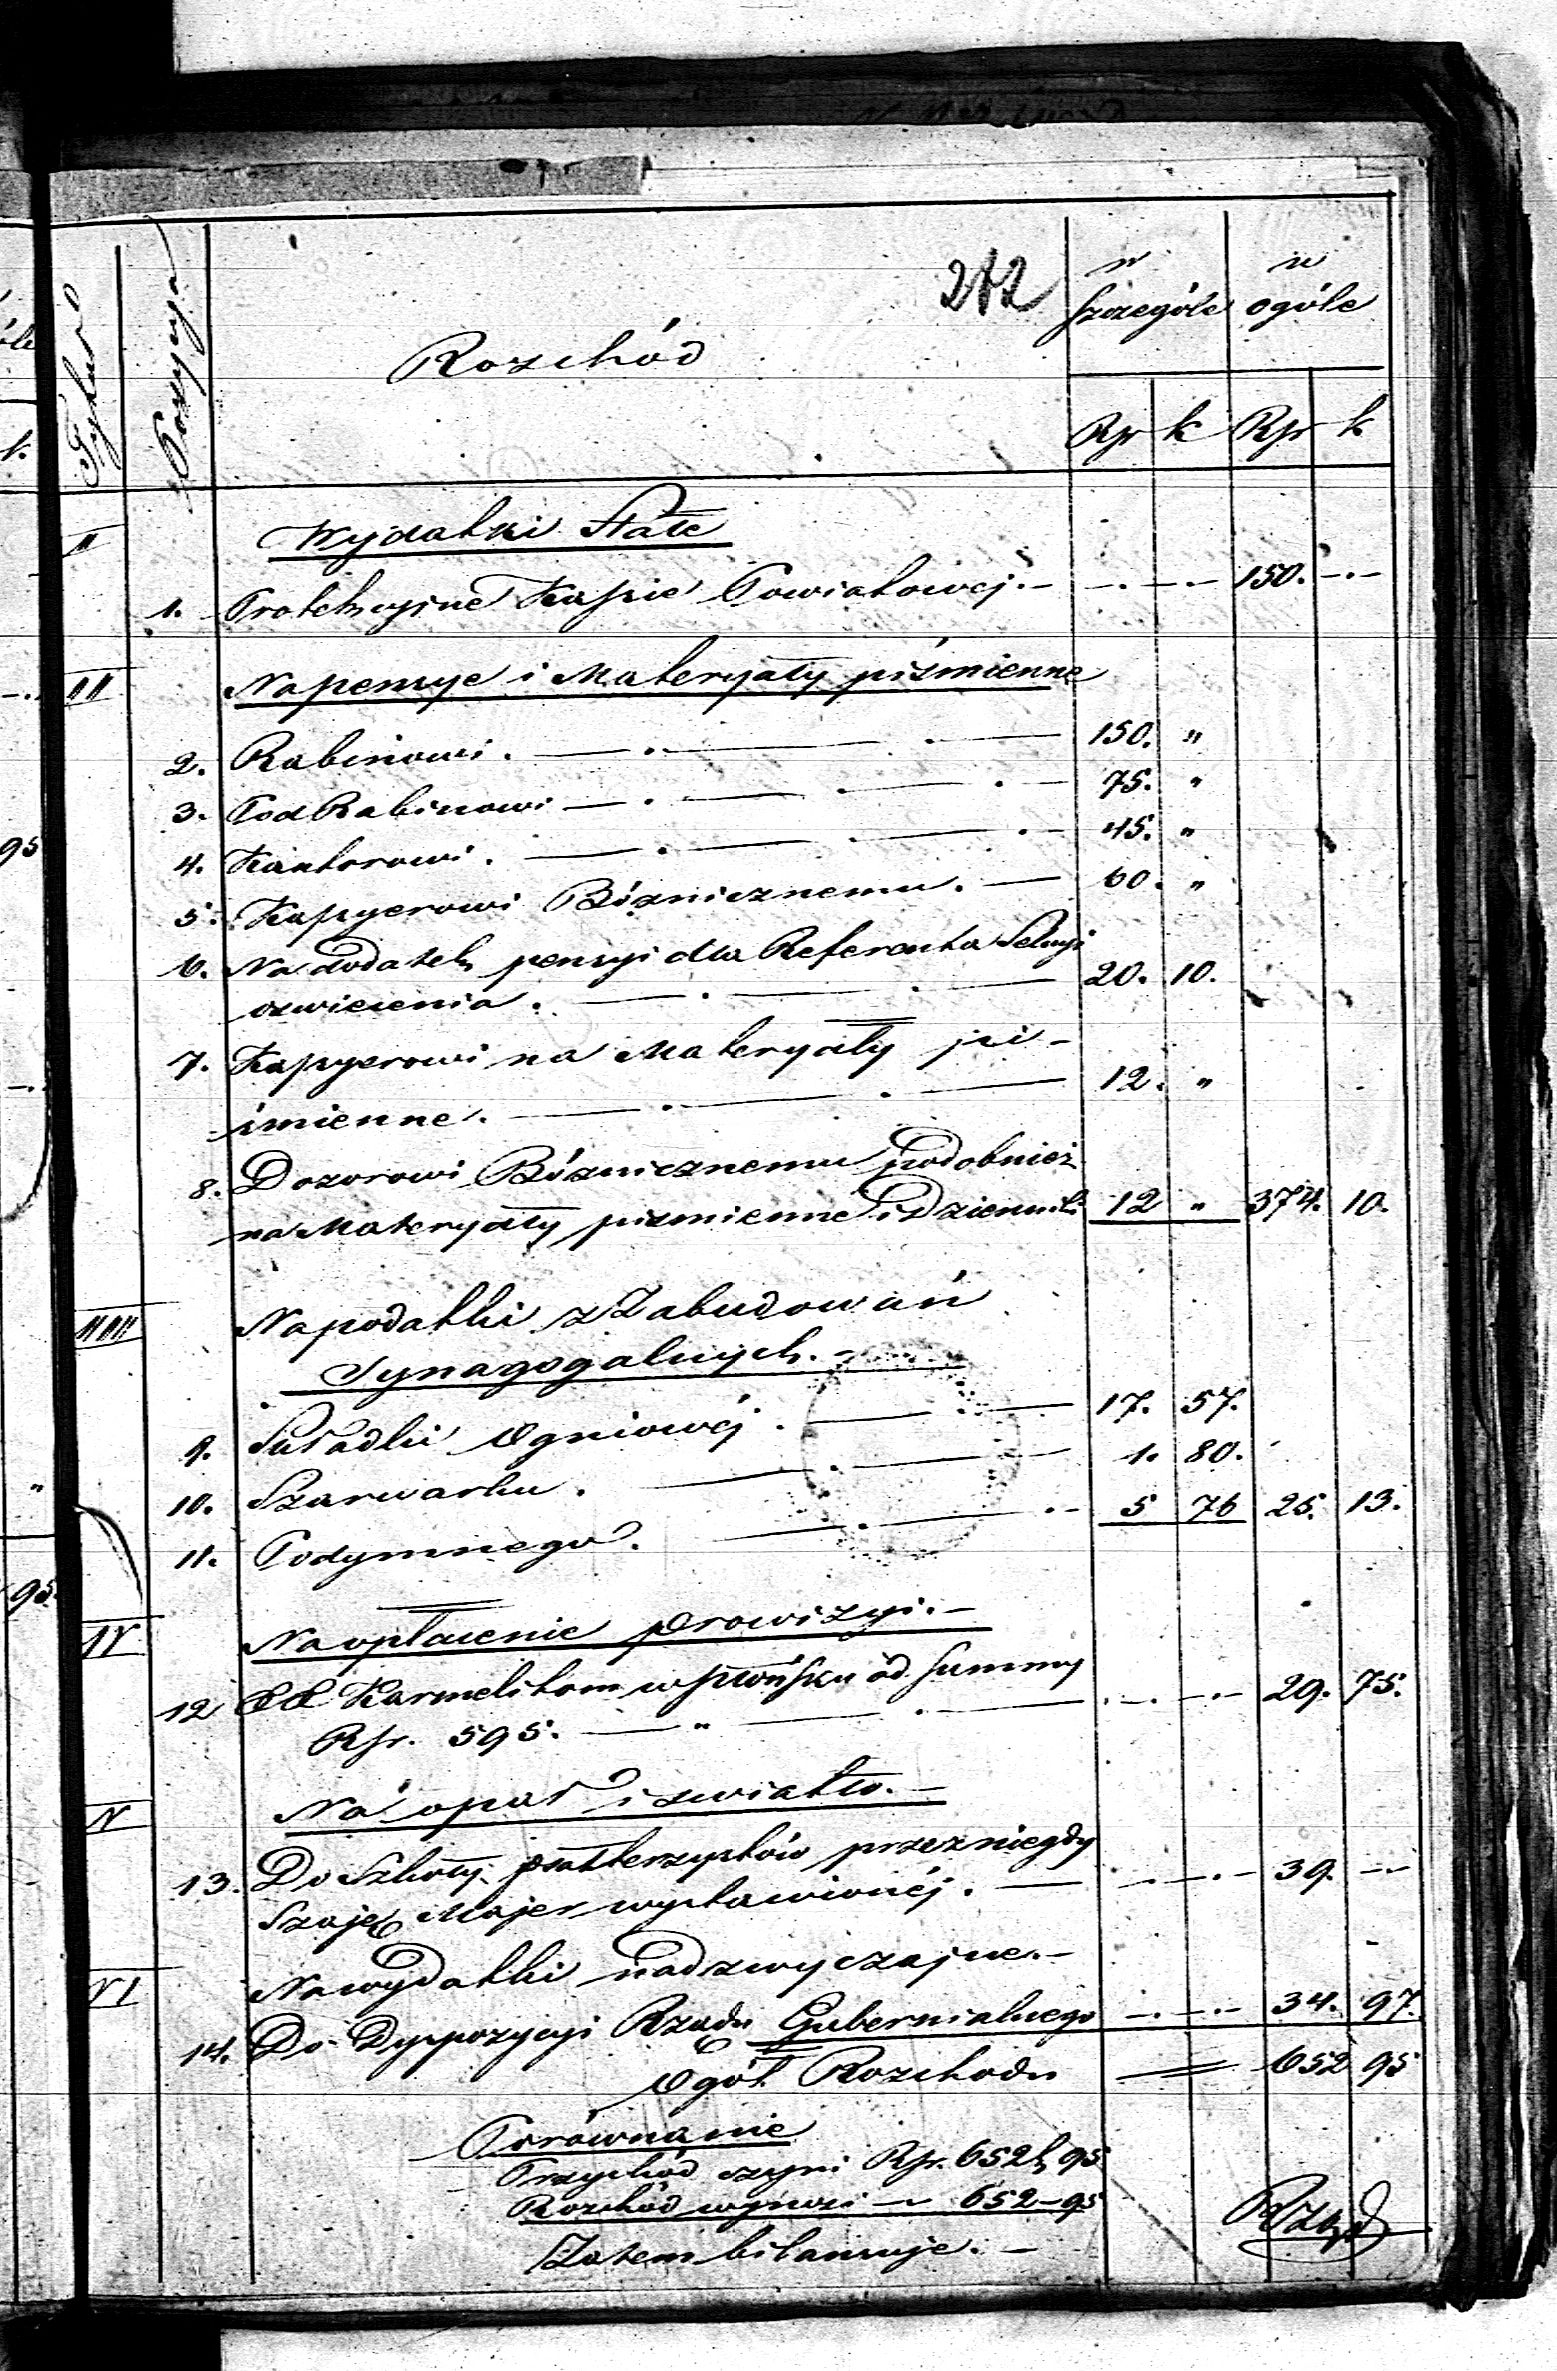 242
Tytuł
Pozycya
Rozchód
w szczególe
w ogóle
Rsr k Rsr k
II Wydatki Stałe
1. Protekcyjne Kassie Powiatowej. — 150. —
III Na pensye i Materyały piśmienne
2. Rabinowi. — 150. "
3. PodRabinowi — 75. "
4. Kantorowi. — 45. "
5. Kassyerowi Bóżnicznemu. — 60. "
6. Na dodatek pensyi dla Referenta Sekcyi
oswiecenia. — 20. 10.
7. Kassyerowi na Materyały pi-
śmienne. — 12. "
8. Dozorowi Bóżnicznemu podobnież
na Materyały pismienne i Dzienniki 12 " 374. 10.
IIII Na podatki z Zabudowań
Synagogalnych. —
9. Składki Ogniowéj. — 17. 57.
10. Szarwarku. — 1. 80.
11. Podymnego. — 5 76 25. 13.
IV Na opłacenie Prowizyi. —
12 XX Karmelitom w Płońsku od Summy
Rsr. 595. — " — 29. 75.
V Na opał i swiatło. —
13. Do Szkoły psałterzystów przez niegdy
Szaję Majer wystawionéj. — 39. —
VI Na wydatki nadzwyczajne. —
14. Do Dyspozycyi Rządu Gubernialnego — 34. 97.
Ogół Rozchodu = 652 95
Porównanie
Przychód czyni Rsr. 652 k 95
Rozchód wynosi — 652 – 95
Zatem bilansuje. —